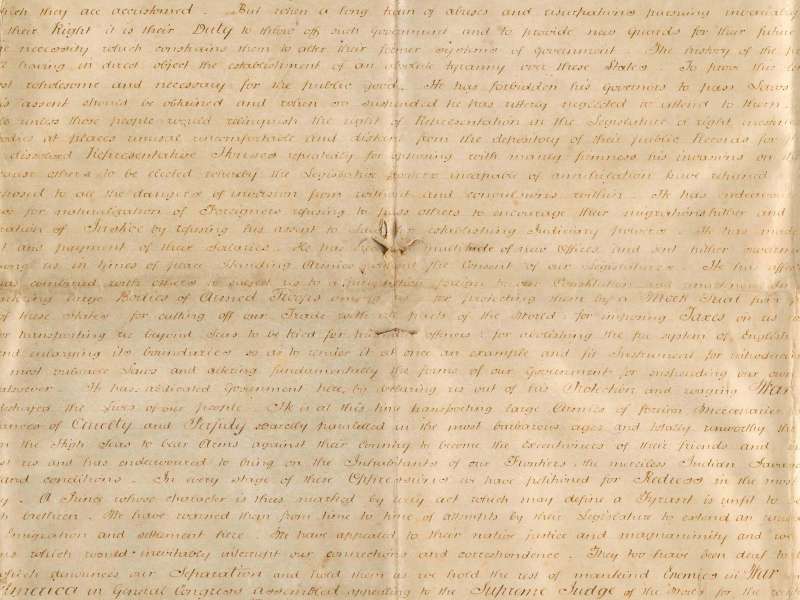 which they are accustomed. But when a long train of abuses and usurpations pursuing invariably
their Right it is their Duty to throw off such Government and to provide new Guards for their future
necessity which constrains them to alter their former systems of Government. The history of the
having in direct object the establishment of an absolute tyranny over these States. To prove this
wholesome and necessary for the public good. He has forbidden his Governors to pass Laws
assent should be obtained and when so suspended he has utterly neglected to attend to them.
unless those people would relinquish the right of Representation in the Legislature a right
bodies at places unusual uncomfortable and distant from the depository of their public Records for
dissolved Representative Houses repeatedly for opposing with manly firmness his invasions on
cause others to be elected whereby the Legislative powers incapable of annihilation have returned
exposed to all the dangers of invasion from without and convulsions within. He has
for naturalization of Foreigners refusing to pass others to encourage their migrations hither and
of Justice by refusing his assent to establishing Judiciary powers. He has made
and payment of their Salaries. He has multitude of new Offices and sent hither
among us in times of peace Standing Armies the Consent of our Legislatures. He has
has combined with others to subject us to a foreign to our Constitution and
large Bodies of Armed Troops among for protecting them by a Mock Trial from
of these States for cutting off our Trade with parts of the World for imposing Taxes on us
for transporting us beyond Seas to be tried for offences for abolishing the free system of English
and enlarging its boundaries so as to render it at once an example and fit Instrument for
most valuable Laws and altering fundamentally the forms of our Government for suspending our own
whatsoever. He has abdicated Government here by declaring us out of his Protection and waging War
destroyed the Lives of our people. He is at this time transporting large Armies of foreign Mercenaries
of Cruelty and Perfidy scarcely paralleled in the most barbarous ages and totally unworthy the
on the High Seas to bear Arms against their Country to become the executioners of their friends and
us and has endeavoured to bring on the Inhabitants of our Frontiers the merciless Indian
and conditions. In every stage of these Oppressions we have petitioned for Redress in the most
A Prince whose character is thus marked by every act which may define a Tyrant is unfit to
brethren. We have warned them from time to time of attempts by their Legislature to extend an
Emigration and settlement here. We have appealed to their native justice and magnanimity and we
which would inevitably interrupt our connections and correspondence. They too have been deaf
which denounces our Separation and hold them as we hold the rest of mankind Enemies in War
America in General Congress Assembled appealing to the Supreme Judge of the World for the